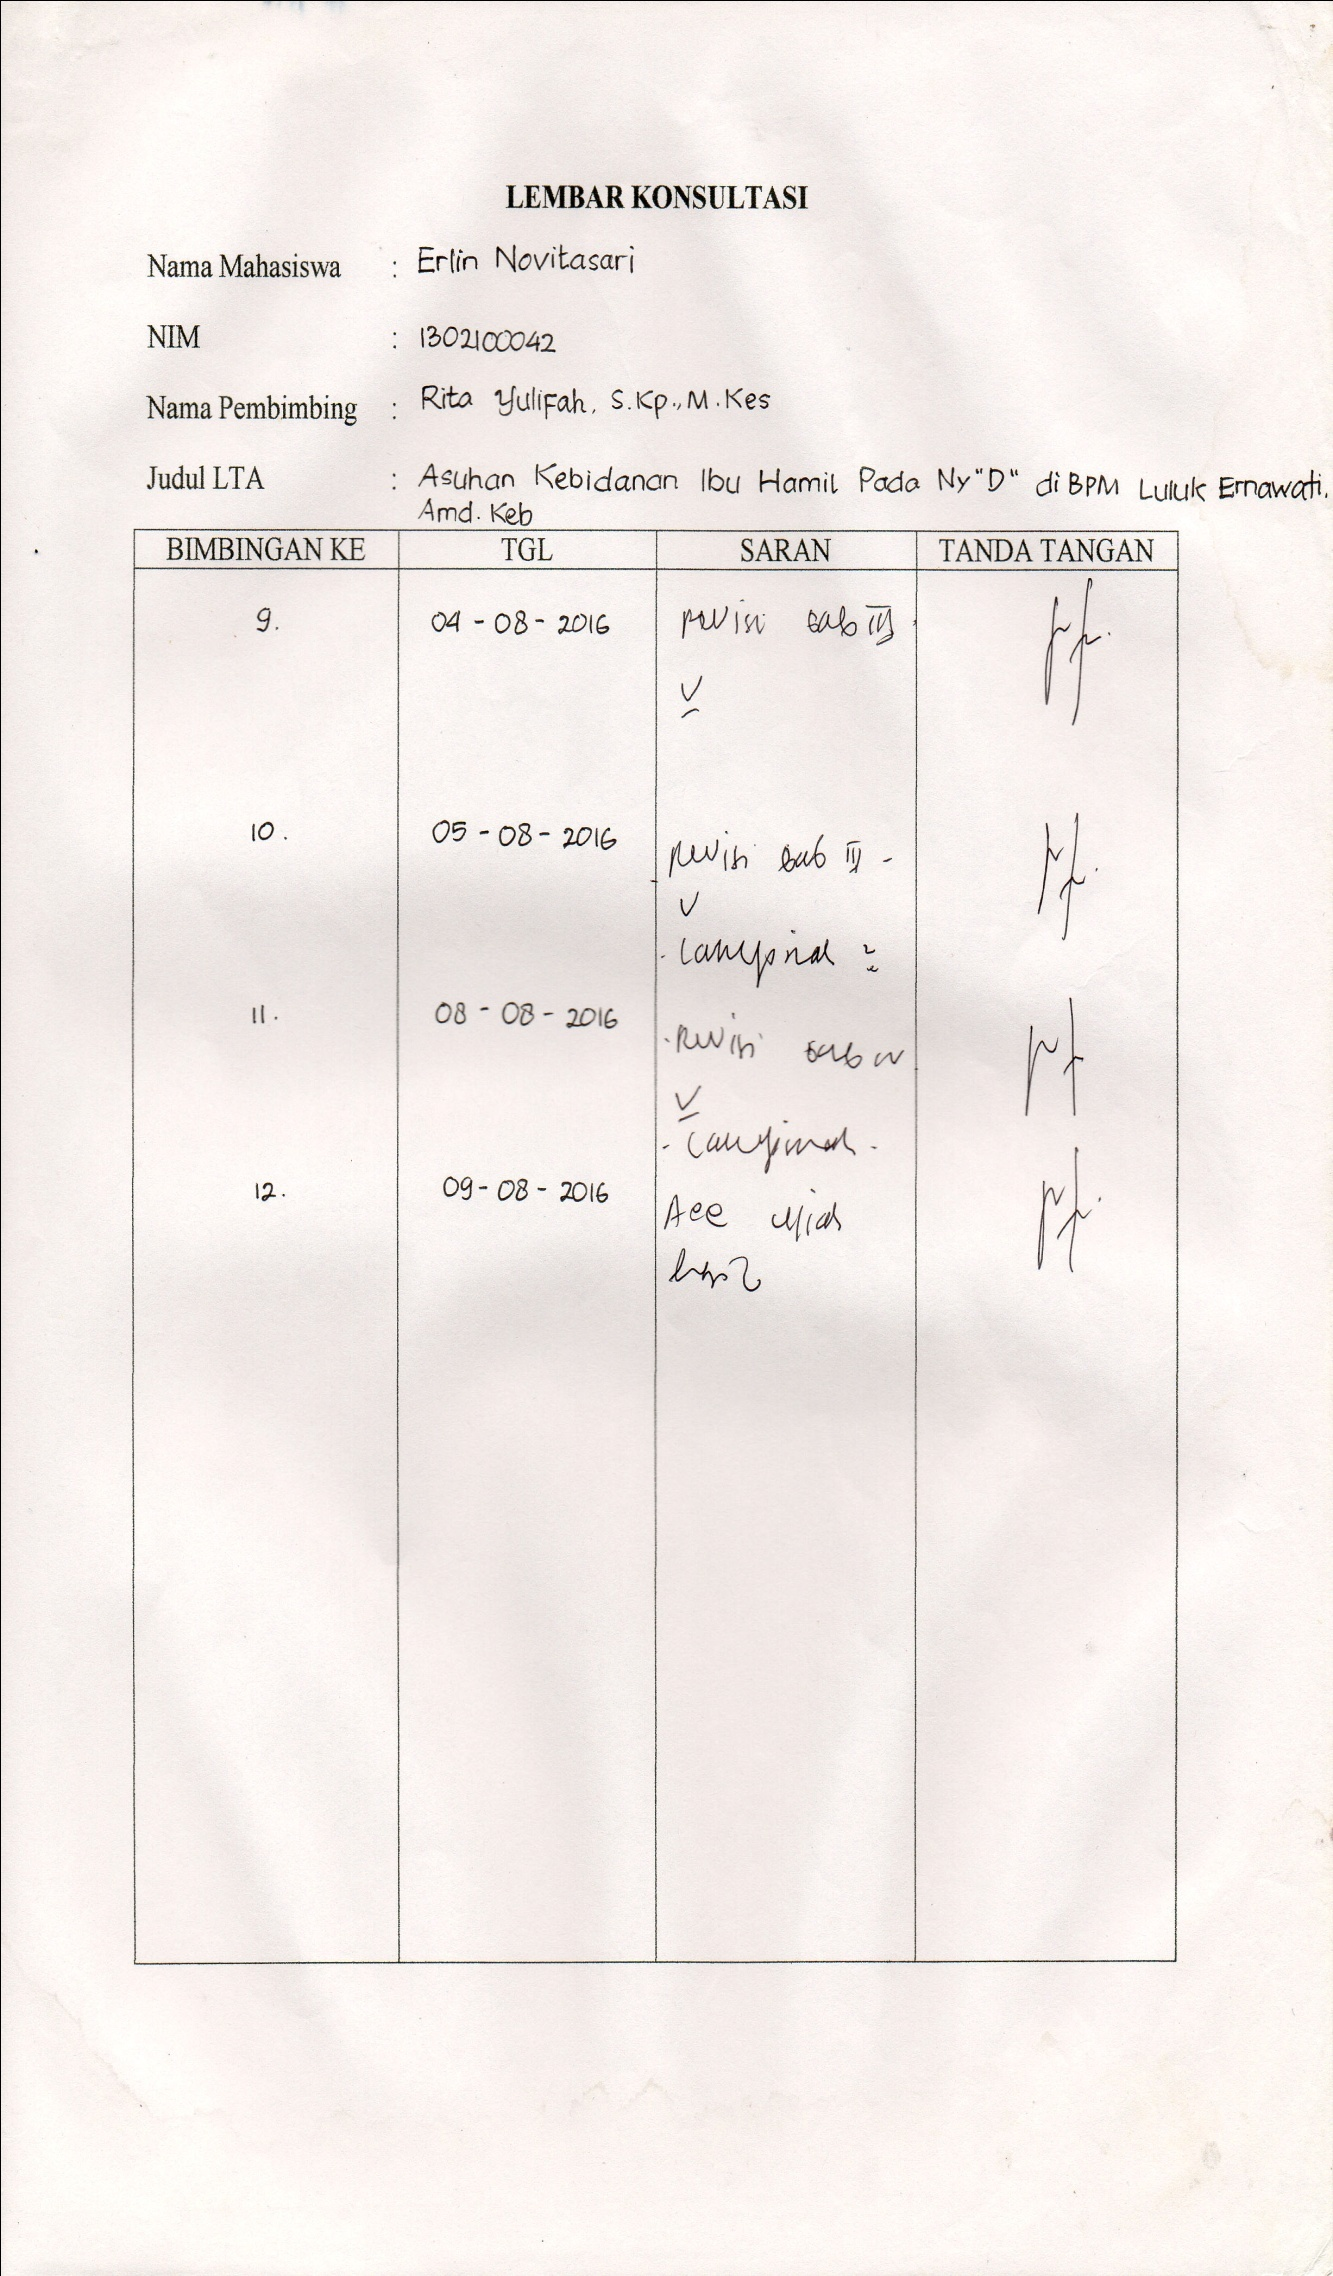 LEMBAR KONSULTASI
Nama Mahasiswa : Erlin Novitasari
NIM : 1302100042
Nama Pembimbing : Rita Yulifah, S.Kp., M.Kes
Judul LTA : Asuhan Kebidanan Ibu Hamil Pada Ny "D" di BPM Luluk Ernawati,
Amd. Keb
BIMBINGAN KE TGL SARAN TANDA TANGAN
9. 04-08-2016 revisi bab III -
V
10. 05-08-2016 revisi bab III -
V
- Lampiran
11. 08-08-2016 - revisi bab IV
V
- Lampiran -
12. 09-08-2016 Acc ujian